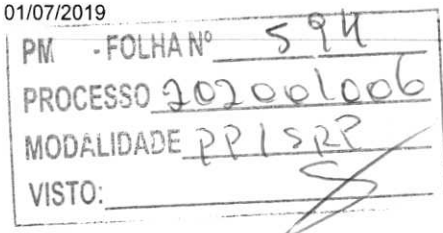 01/07/2019
PM - FOLHA Nº 594
PROCESSO 202001006
MODALIDADE PP/SRP
VISTO: